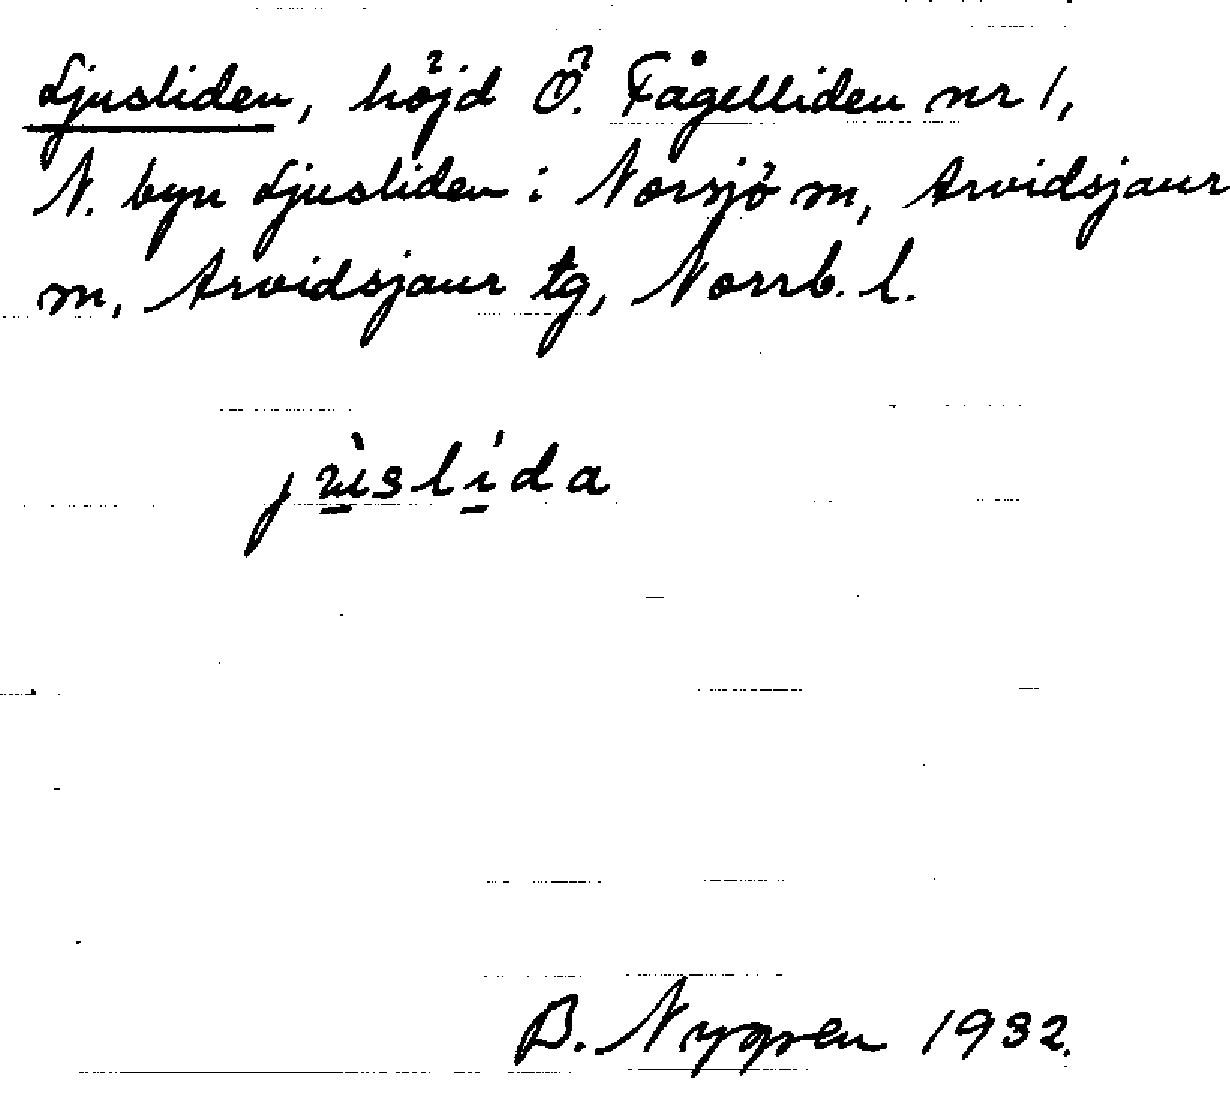 Ljusliden, höjd Ö. Fågelliden nr 1,
N. byn Ljusliden i Norsjö sn, Arvidsjaur
sn, Arvidsjaur tg, Norrb. l.
jʉ̀slída
B. Nygren 1932.